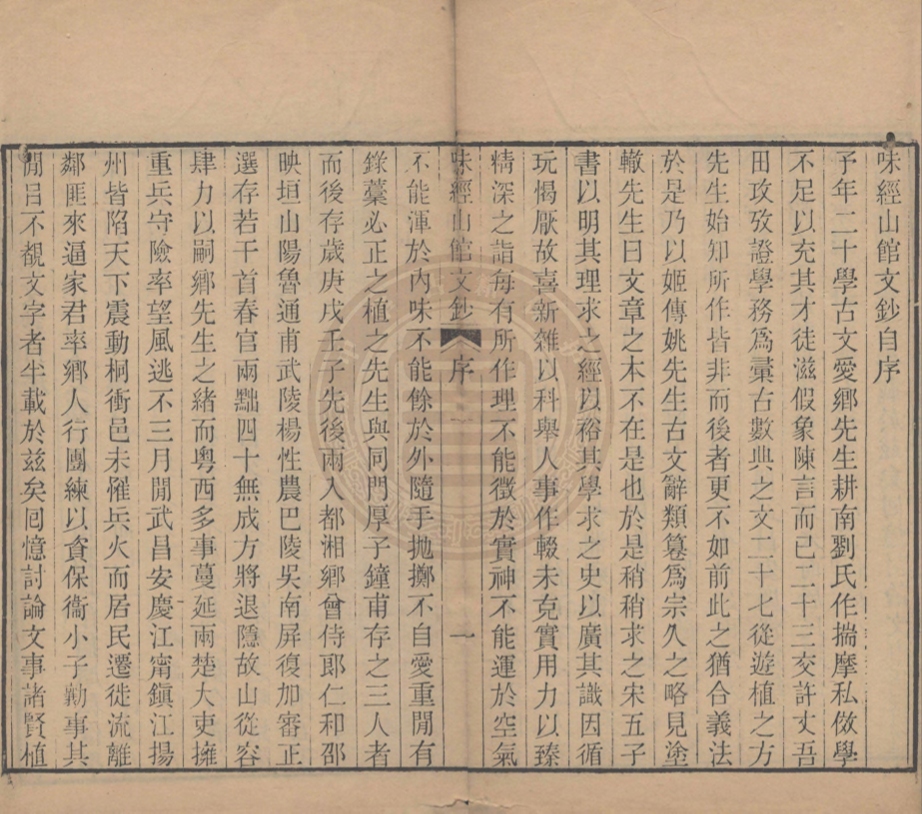 味經山館文鈔自序
予年二十學古文愛鄉先生耕南劉氏作揣摩私倣學
不足以充其才徒滋假象陳言而已二十三交許丈吾
田攻攷證學務爲櫜右數典之文二十七從遊植之方
先生始知所作皆非而後者更不如前此之猶合義法
於是乃以姬傳姚先生古文辭類篹爲宗久之略見塗
轍先生曰文章之本不在是也於是稍稍求之宋五子
書以明其理求之經以裕其學求之史以廣其識因循
玩愒厭故喜新雜以科舉人事作輟未克實用力以臻
精深之詣每有所作理不能徵於實神不能運於空氣
味經山館文鈔 序 一
不能渾於內味不能餘於外隨手拋擲不自愛重閒有
錄藁必正之植之先生與同門厚子鐘甫存之三人者
而後存歲庚戌壬子先後兩入都湘鄉曾侍郎仁和邵
映垣山陽魯通甫武陵楊性農巴陵吳南屏復加審正
選存若干首春官兩黜四十無成方將退隱故山從容
肆力以嗣鄉先生之緒而粵西多事蔓延兩楚大吏擁
重兵守險率望風逃不三月閒武昌安慶江甯鎮江揚
州皆陷天下震動桐衝邑未罹兵火而居民遷徙流離
鄰匪來逼家君率鄉人行團練以資保衞小子勷事其
閒目不覩文字者半載於兹矣囘憶討論文事諸賢植